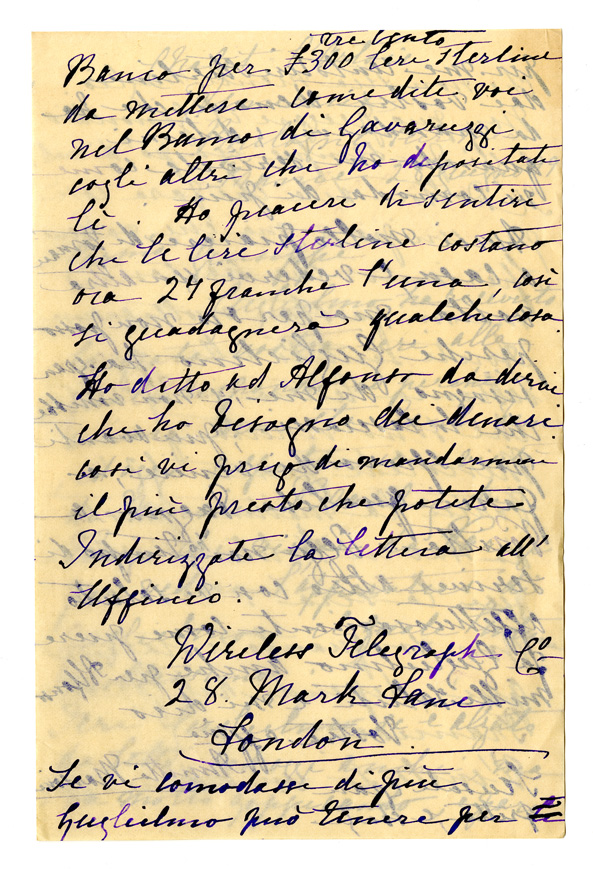 tre cento
Banco per £300 lire sterline
da mettere come dite voi
nel Banco di Gavaruzzi
cogli altri che ho depositati
lì. Ho piacere di sentire
che le lire sterline costano
ora 27 franchi l'una, così
si guadagnerà qualche cosa.
Ho detto ad Alfonso da dirvi
che ho bisogno dei denari
così vi prego di mandarmeni
il più presto che potete
Indirizzate la lettera all'
Ufficio.
Wireless Telegraph Co
28. Mark Lane
London
Se vi comodasse di più
Guglielmo può tenere per